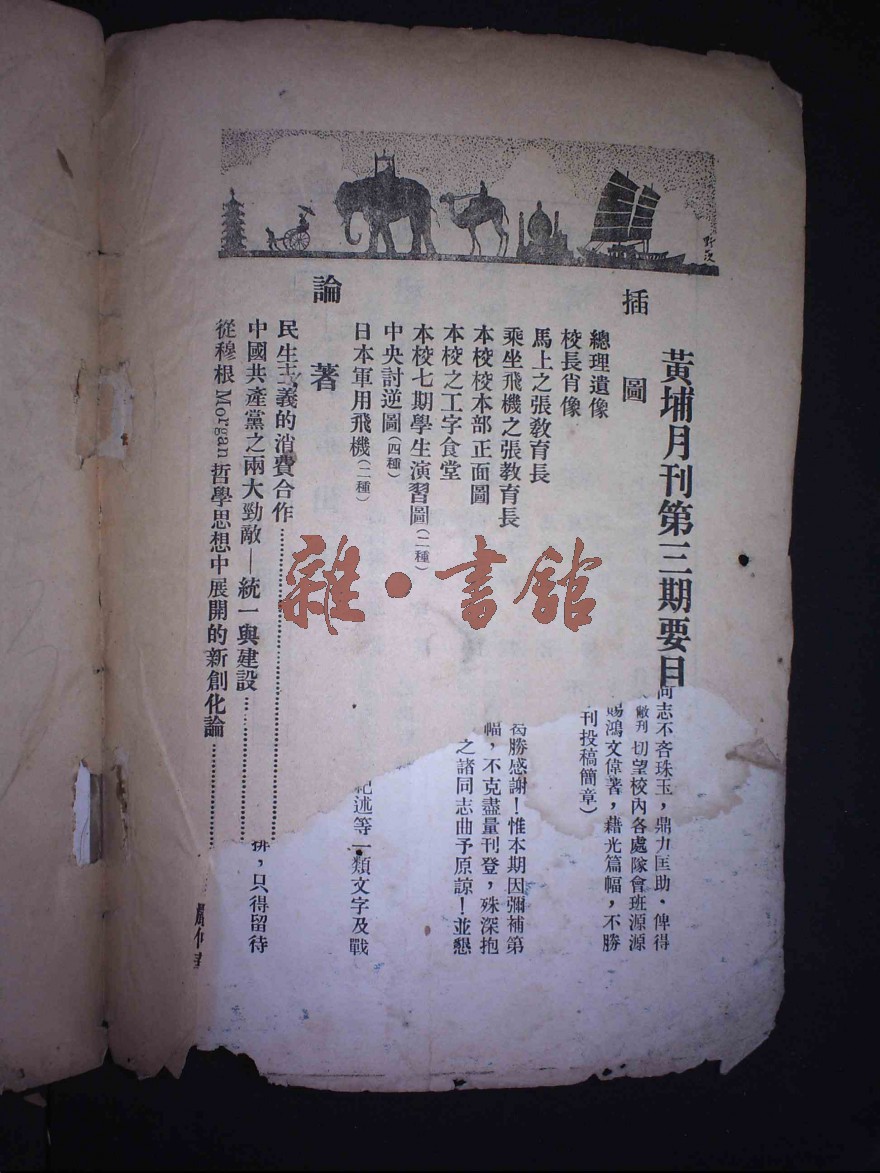 黃埔月刊第三期要目
插圖
總理遺像
校長肖像
馬上之張敎育長
乘坐飛機之張敎育長
本校校本部正面圖
本校之工字食堂
本校七期學生演習圖(二種)
中央討逆圖(四種)
日本軍用飛機(二種)
論著
民生主義的消費合作
中國共產黨之兩大勁敵—統一與建設
從穆根Morgan哲學思想中展開的新創化論
同志不吝珠玉，鼎力匡助，俾得
敝刊切望校內各處隊會班源源
賜鴻文偉著，藉光篇幅，不勝
刊投稿簡章）
曷勝感謝！惟本期因彌補第
幅，不克盡量刊登，殊深抱
之諸同志曲予原諒！並懇
紀述等一類文字及戰
排，只得留待
雜·書館